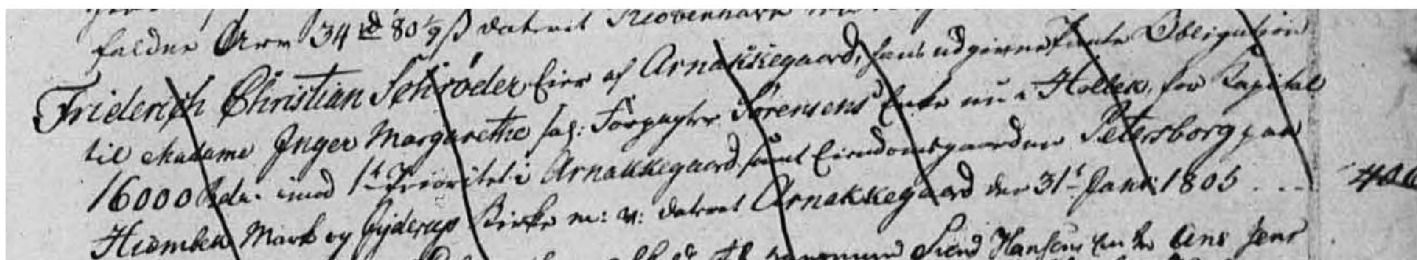 faldne Arv 34 rd 80 1/9 ß dateret Kiøbenhavn
Friderich Christian Schrøder Eier af Arnakkegaard, hans udgivne Obligation
til Madame Inger Margarethe sal: Forpagter Sørensens Enke nu i Holbek, for Kapital
16000 Rdr. imod 1ste Prioritet i Arnakkegaard samt Eiendomsgaarden Petersborg paa
Hiembek Mark og Gyderup Kirke m: v: dateret Arnakkegaard den 31te Janv: 1805 ... 406
Svend Hansens Enke Ane Jens